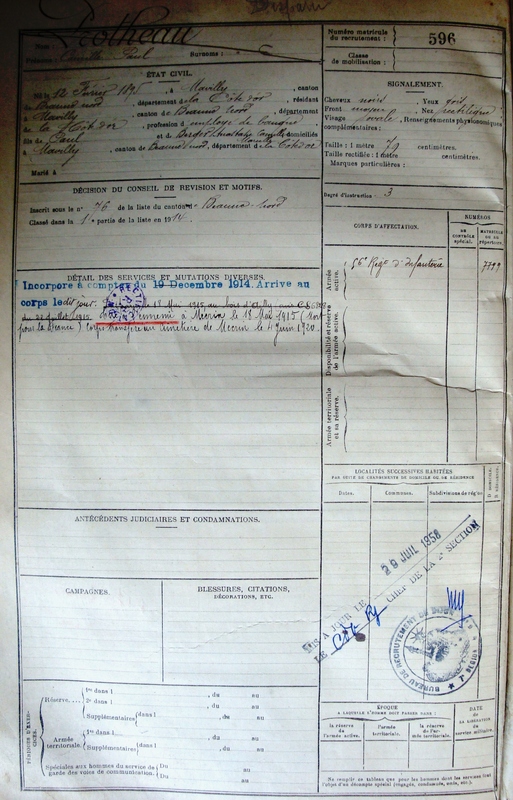 Disparu
Numéro matricule
du recrutement :
596
Classe
de mobilisation :
Nom :
Prénoms : Paul Surnoms :
ÉTAT CIVIL.
Né le 12 Février , à Mavilly, canton
Beaune nord, département de la Côte d'or, résidant
Mavilly, canton de Beaune nord, département
de la Côte d'or, profession d
fils de Paul et de domiciliés
à Mavilly, canton de Beaune nord, département de la Côte d'or
Marié à
SIGNALEMENT.
Cheveux noirs. Yeux gris
Front moyen. Nez rectiligne
Visage ovale. Renseignements physionomiques
complémentaires :
Taille : 1 mètre 79 centimètres.
Taille rectifiée : 1 mètre centimètres.
Marques particulières :
Degré d'instruction : 3
DÉCISION DU CONSEIL DE REVISION ET MOTIFS.
Inscrit sous le n° 76 de la liste du canton de Beaune nord
Classé dans la 1e partie de la liste en 1914.
CORPS D'AFFECTATION.
NUMÉROS
DE CONTRÔLE spécial.
MATRICULE OU AU répertoire.
Armée active.
56e Régt d'Infanterie
7799
Disponibilité et réserve de l'armée active.
Armée territoriale et sa réserve.
DÉTAIL DES SERVICES ET MUTATIONS DIVERSES.
Incorporé à compter du 19 Decembre 1914. Arrivé au
corps ledit jour. 18 Mai 1915 au bois d'Ailly
à Mécrin le 18 Mai 1915 (Mort
pour la France) Corps transféré au cimetière de Mécrin le 4 Juin 1920.
LOCALITÉS SUCCESSIVES HABITÉES
PAR SUITE DE CHANGEMENTS DE DOMICILE OU DE RÉSIDENCE
Dates.
Communes.
Subdivisions de région
D. DOMICILE. R. RÉSIDENCE.
ANTÉCÉDENTS JUDICIAIRES ET CONDAMNATIONS.
CAMPAGNES.
BLESSURES, CITATIONS,
DÉCORATIONS, ETC.
MIS A JOUR LE 29 JUIL 1958
LE CHEF DE LA 2e SECTION
BUREAU DE RECRUTEMENT DE DIJON
PÉRIODES D'EXERCICES.
Réserve.
1re dans l , du au
2e dans l , du au
Supplémentaires dans l , du au
Armée
territoriale.
1re dans l , du au
Supplémentaires dans l , du au
Spéciales aux hommes du service de
garde des voies de communication.
Du au
Du au
ÉPOQUE
A LAQUELLE L'HOMME DOIT PASSER DANS :
la réserve de l'armée active.
l'armée territoriale.
la réserve de l'armée territoriale.
DATE de LA LIBÉRATION du service militaire.
Ne remplir ce tableau que pour les hommes dont les services font
l'objet d'un décompte spécial (engagés, condamnés, omis, etc.).